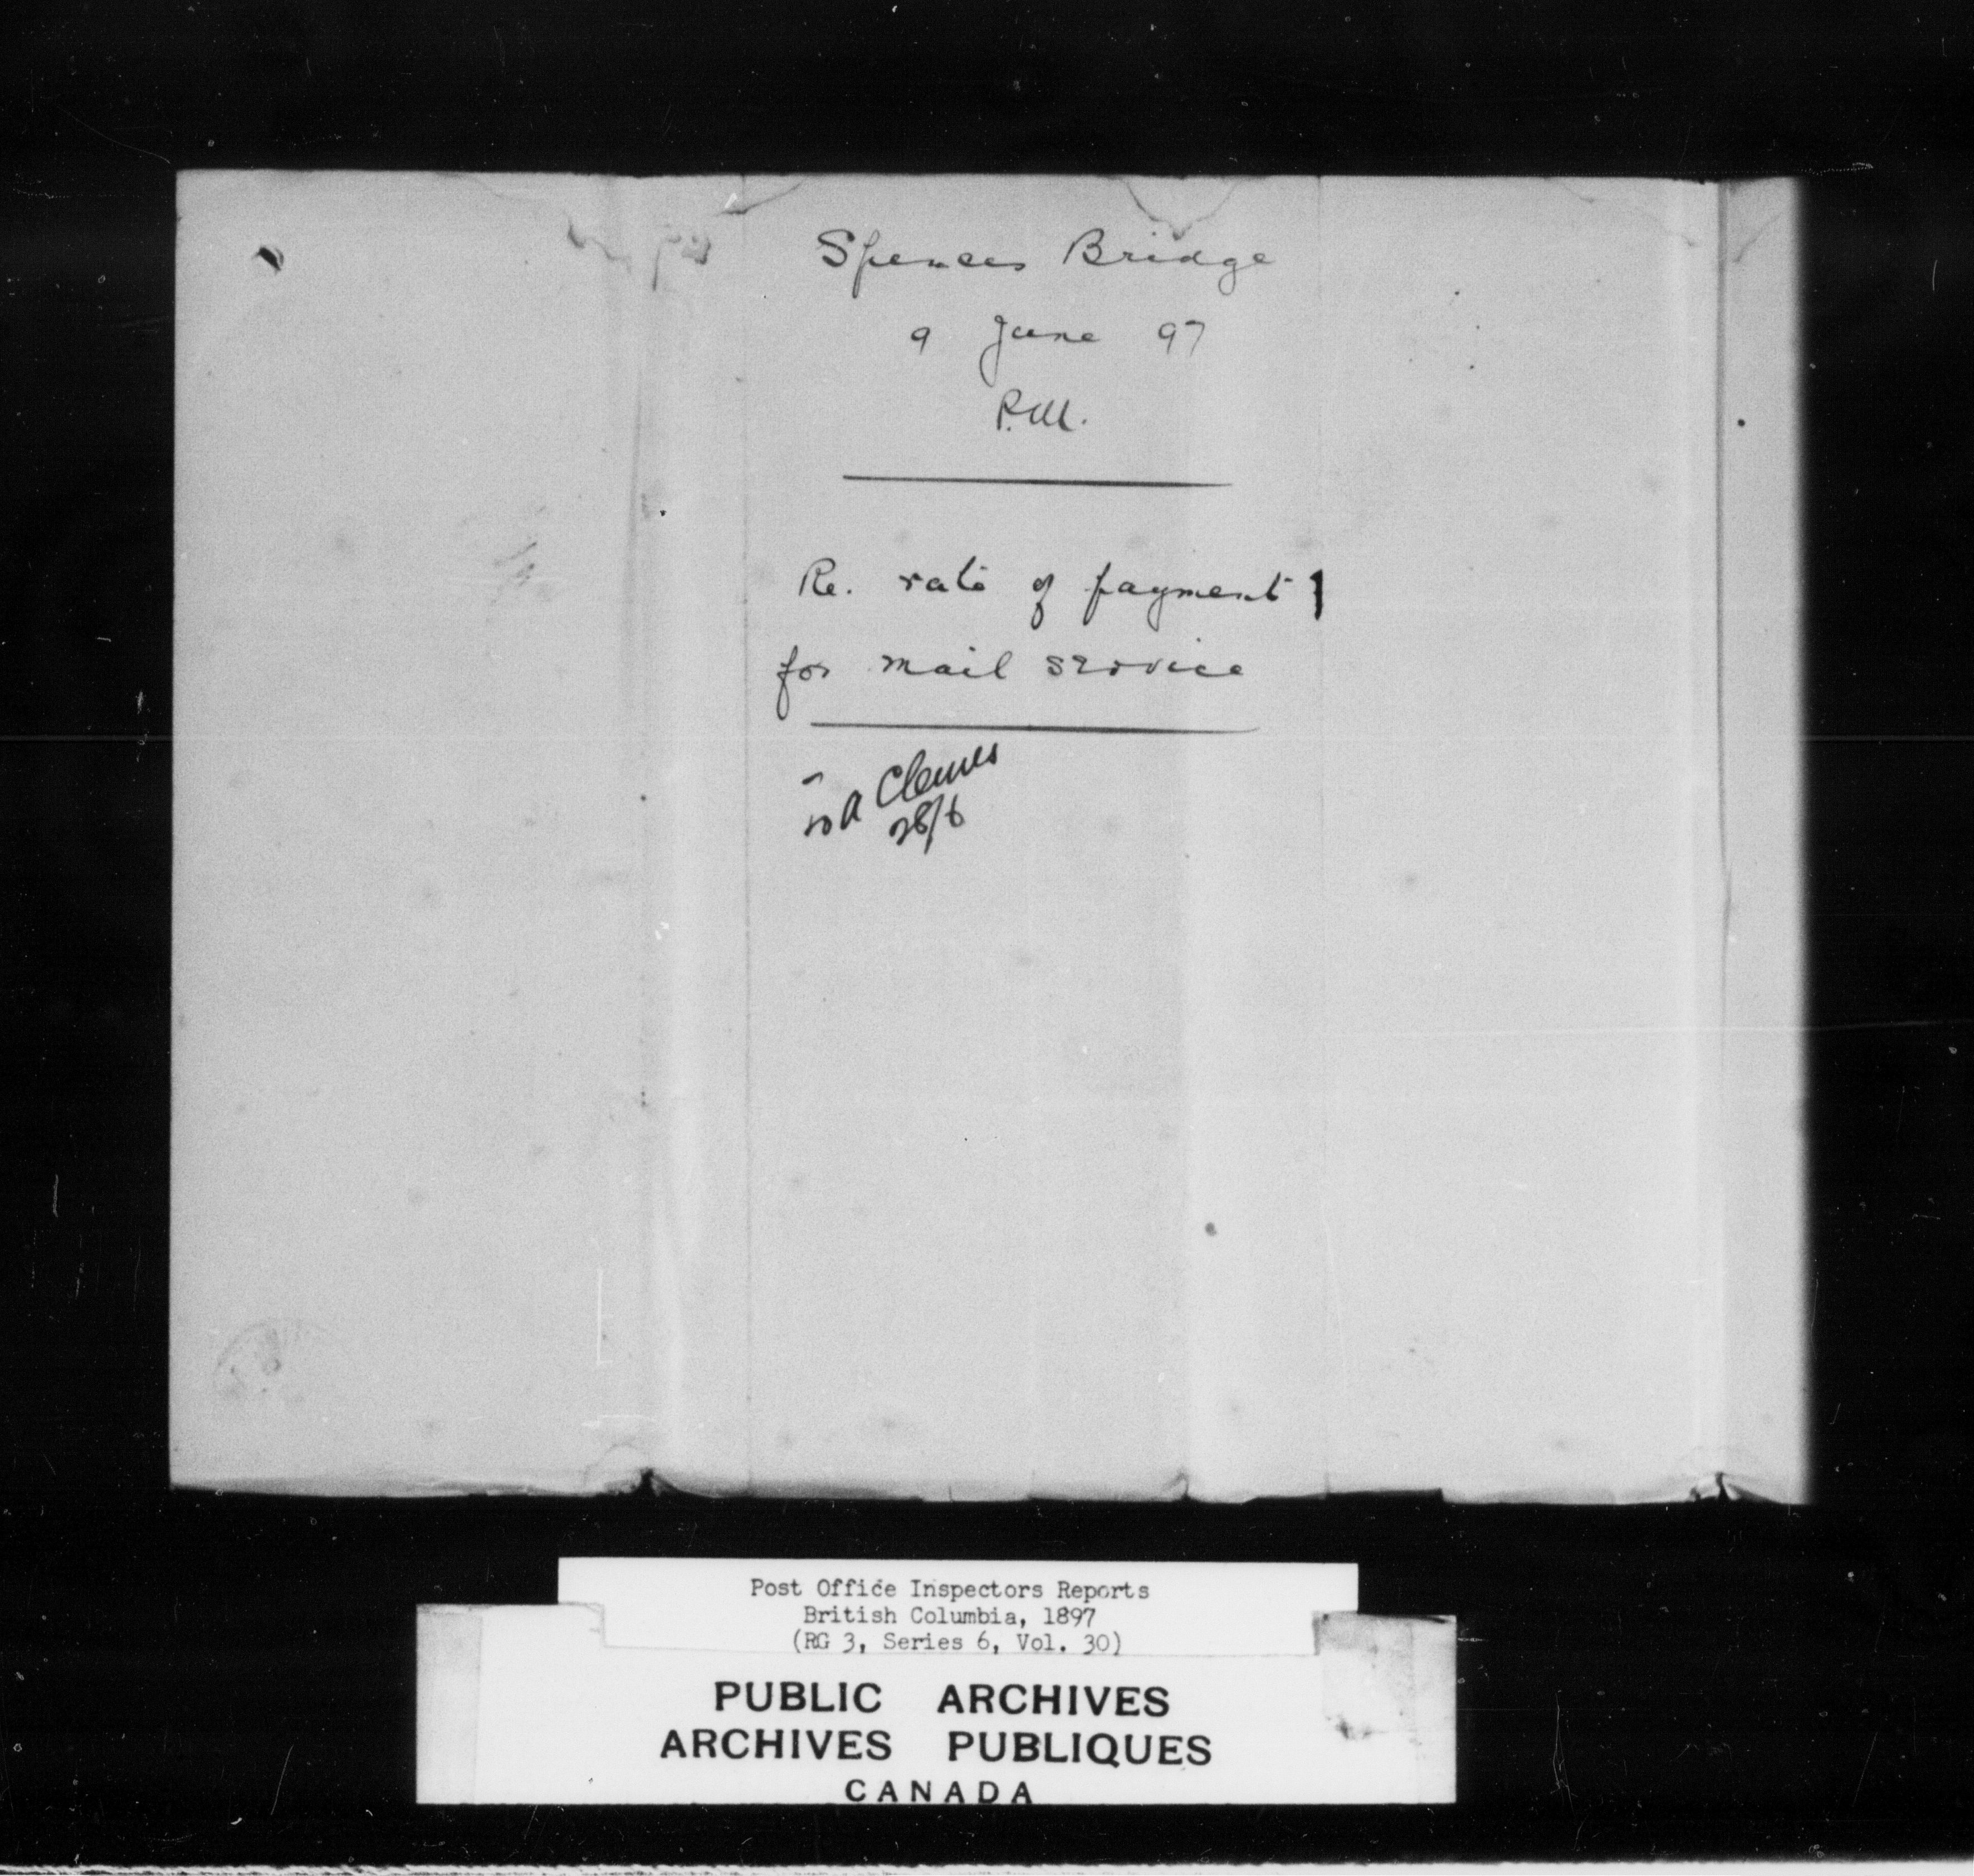 Spences Bridge
9 June 97
P.M.
Re. rate of payment
for mail service
Clemes
28/6
Post Office Inspectors Reports
British Columbia, 1897
(RG 3, Series 6, Vol. 30)
PUBLIC ARCHIVES
ARCHIVES PUBLIQUES
CANADA